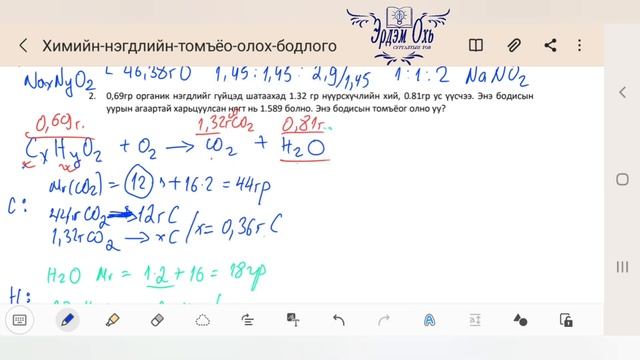 Эрдэм Охь
СУРГАЛТЫН ТӨВ
Химийн-нэгдлийн-томъёо-олох-бодлого
NaxNyO2 46,38гO 1,45 : 1,45 : 2,9/1,45 1:1:2 NaNO2
2. 0,69гр органик нэгдлийг гүйцэд шатаахад 1.32 гр нүүрсхүчлийн хий, 0.81гр ус үүсчээ. Энэ бодисын
уурын агаартай харьцуулсан нягт нь 1.589 болно. Энэ бодисын томъёог олно уу?
0,69г. 1,32гCO2 0,81г.
CxHyO2 + O2 → CO2 + H2O
Mr(CO2) = 12 + 16·2 = 44гр
C: 44гCO2 → 12гC
1,32гCO2 → xC / x = 0,36г.C
H2O Mr = 1·2 + 16 = 18гр
H: